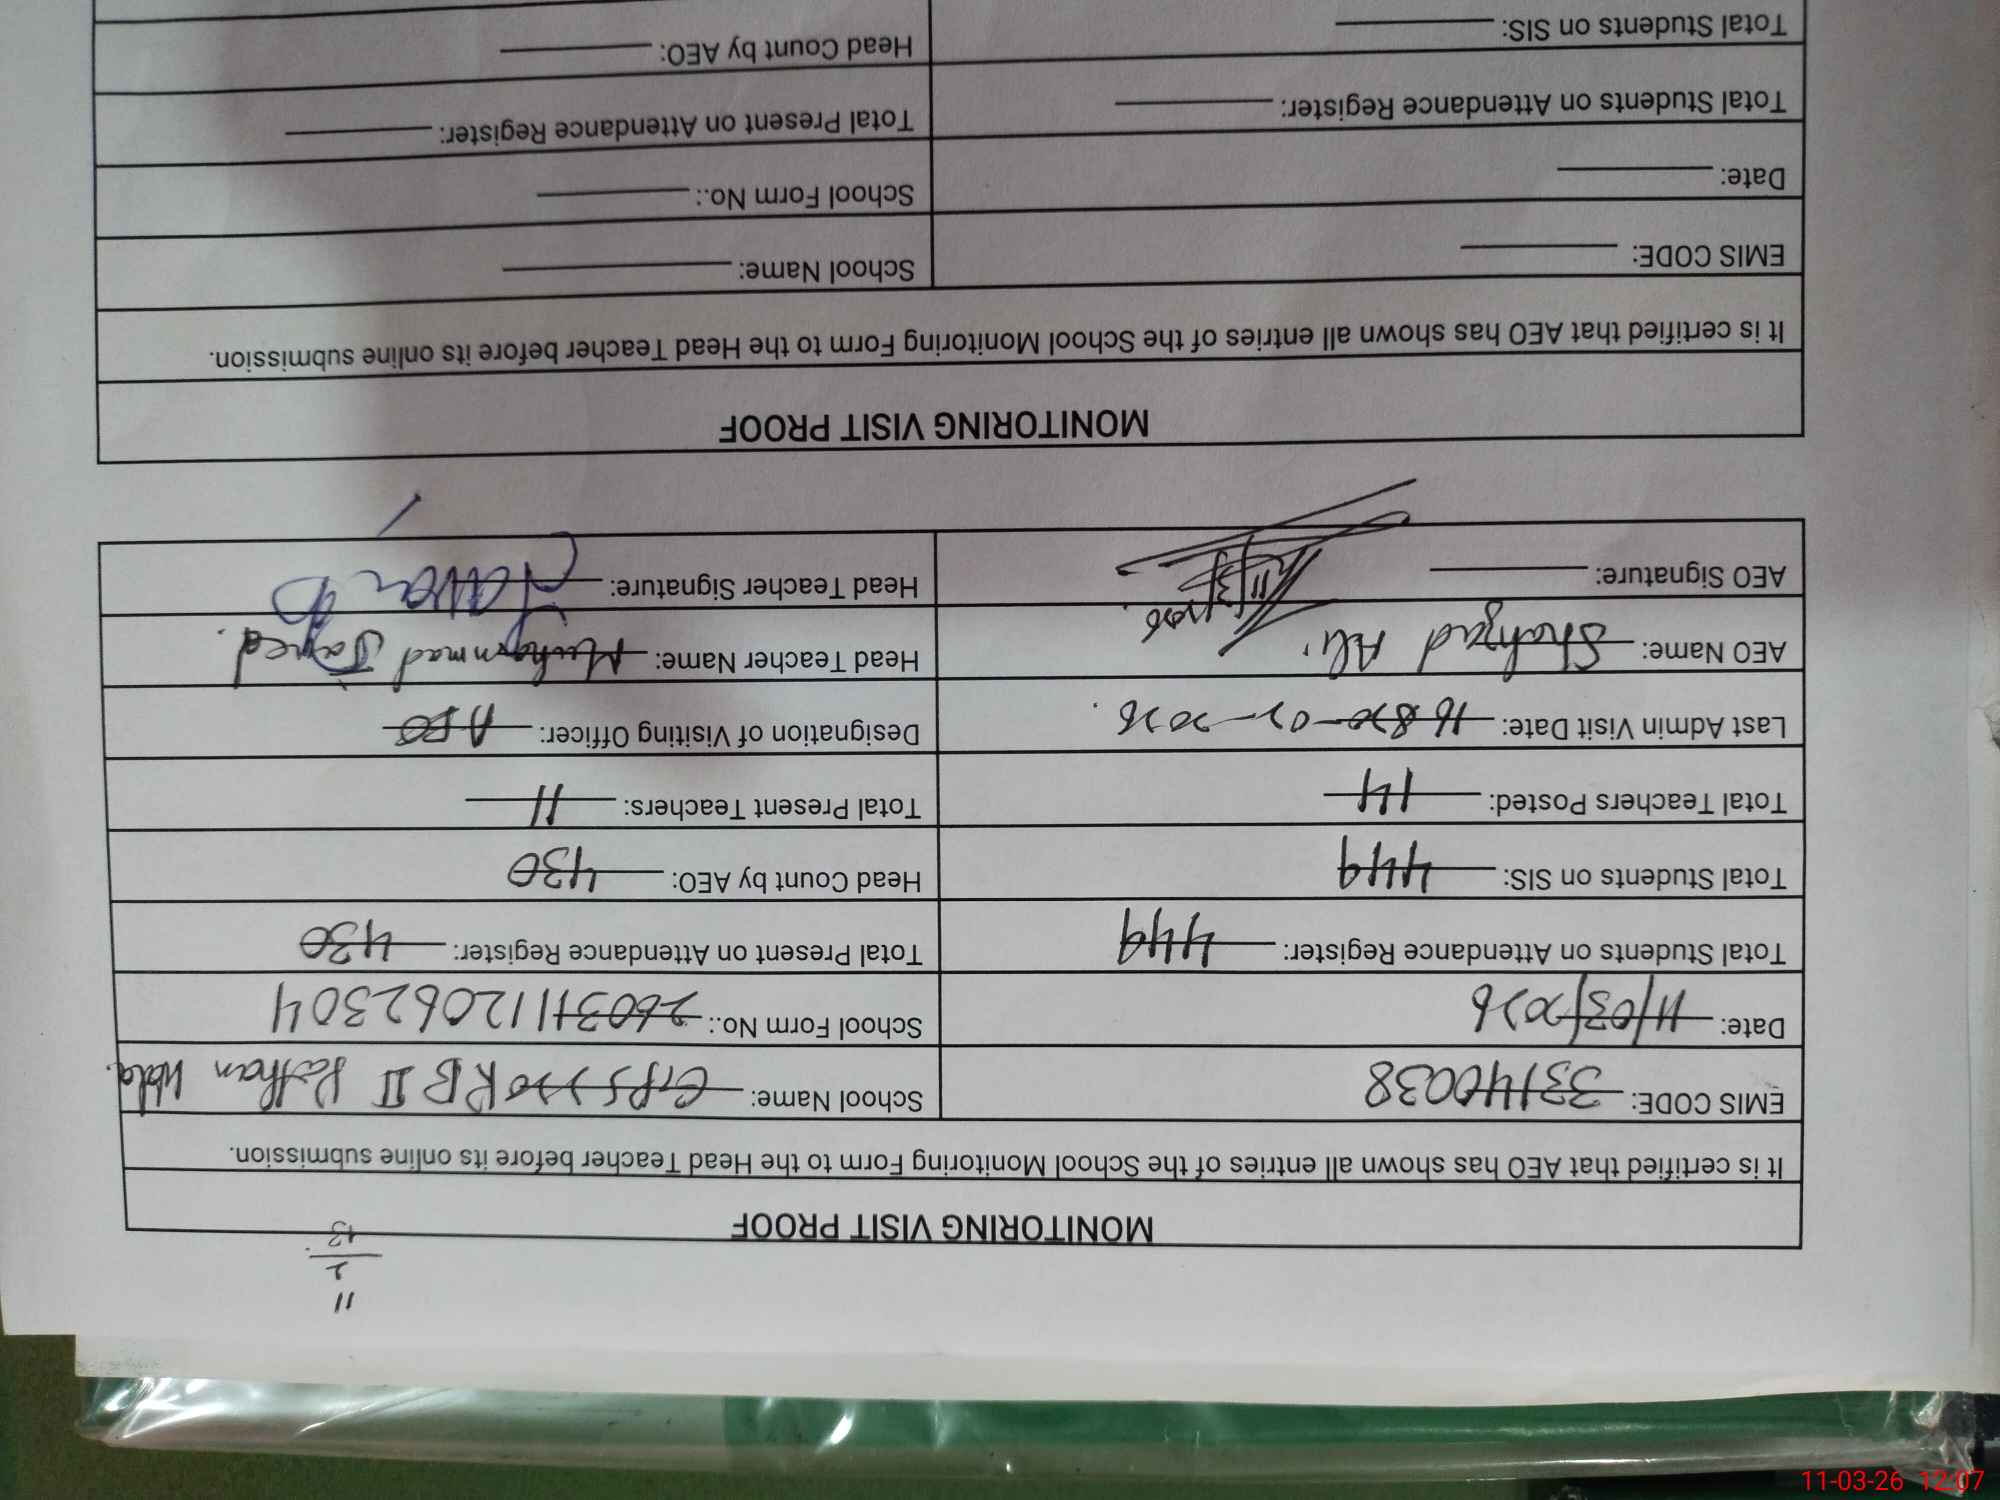 11
2
13
MONITORING VISIT PROOF
It is certified that AEO has shown all entries of the School Monitoring Form to the Head Teacher before its online submission.
EMIS CODE: 33140038 School Name: GPS 220 RB II Pathan Wala.
Date: 11/03/2026 School Form No.: 260311112062304
Total Students on Attendance Register: 449 Total Present on Attendance Register: 430
Total Students on SIS: 449 Head Count by AEO: 430
Total Teachers Posted: 14 Total Present Teachers: 11
Last Admin Visit Date: -02-2026. Designation of Visiting Officer: AEO
AEO Name: Shahzad Ali. Head Teacher Name: Muhammad Javed.
AEO Signature: 11/3/2026 Head Teacher Signature:
MONITORING VISIT PROOF
It is certified that AEO has shown all entries of the School Monitoring Form to the Head Teacher before its online submission.
EMIS CODE: School Name:
Date: School Form No.:
Total Students on Attendance Register: Total Present on Attendance Register:
Total Students on SIS: Head Count by AEO:
11-03-26 12:07